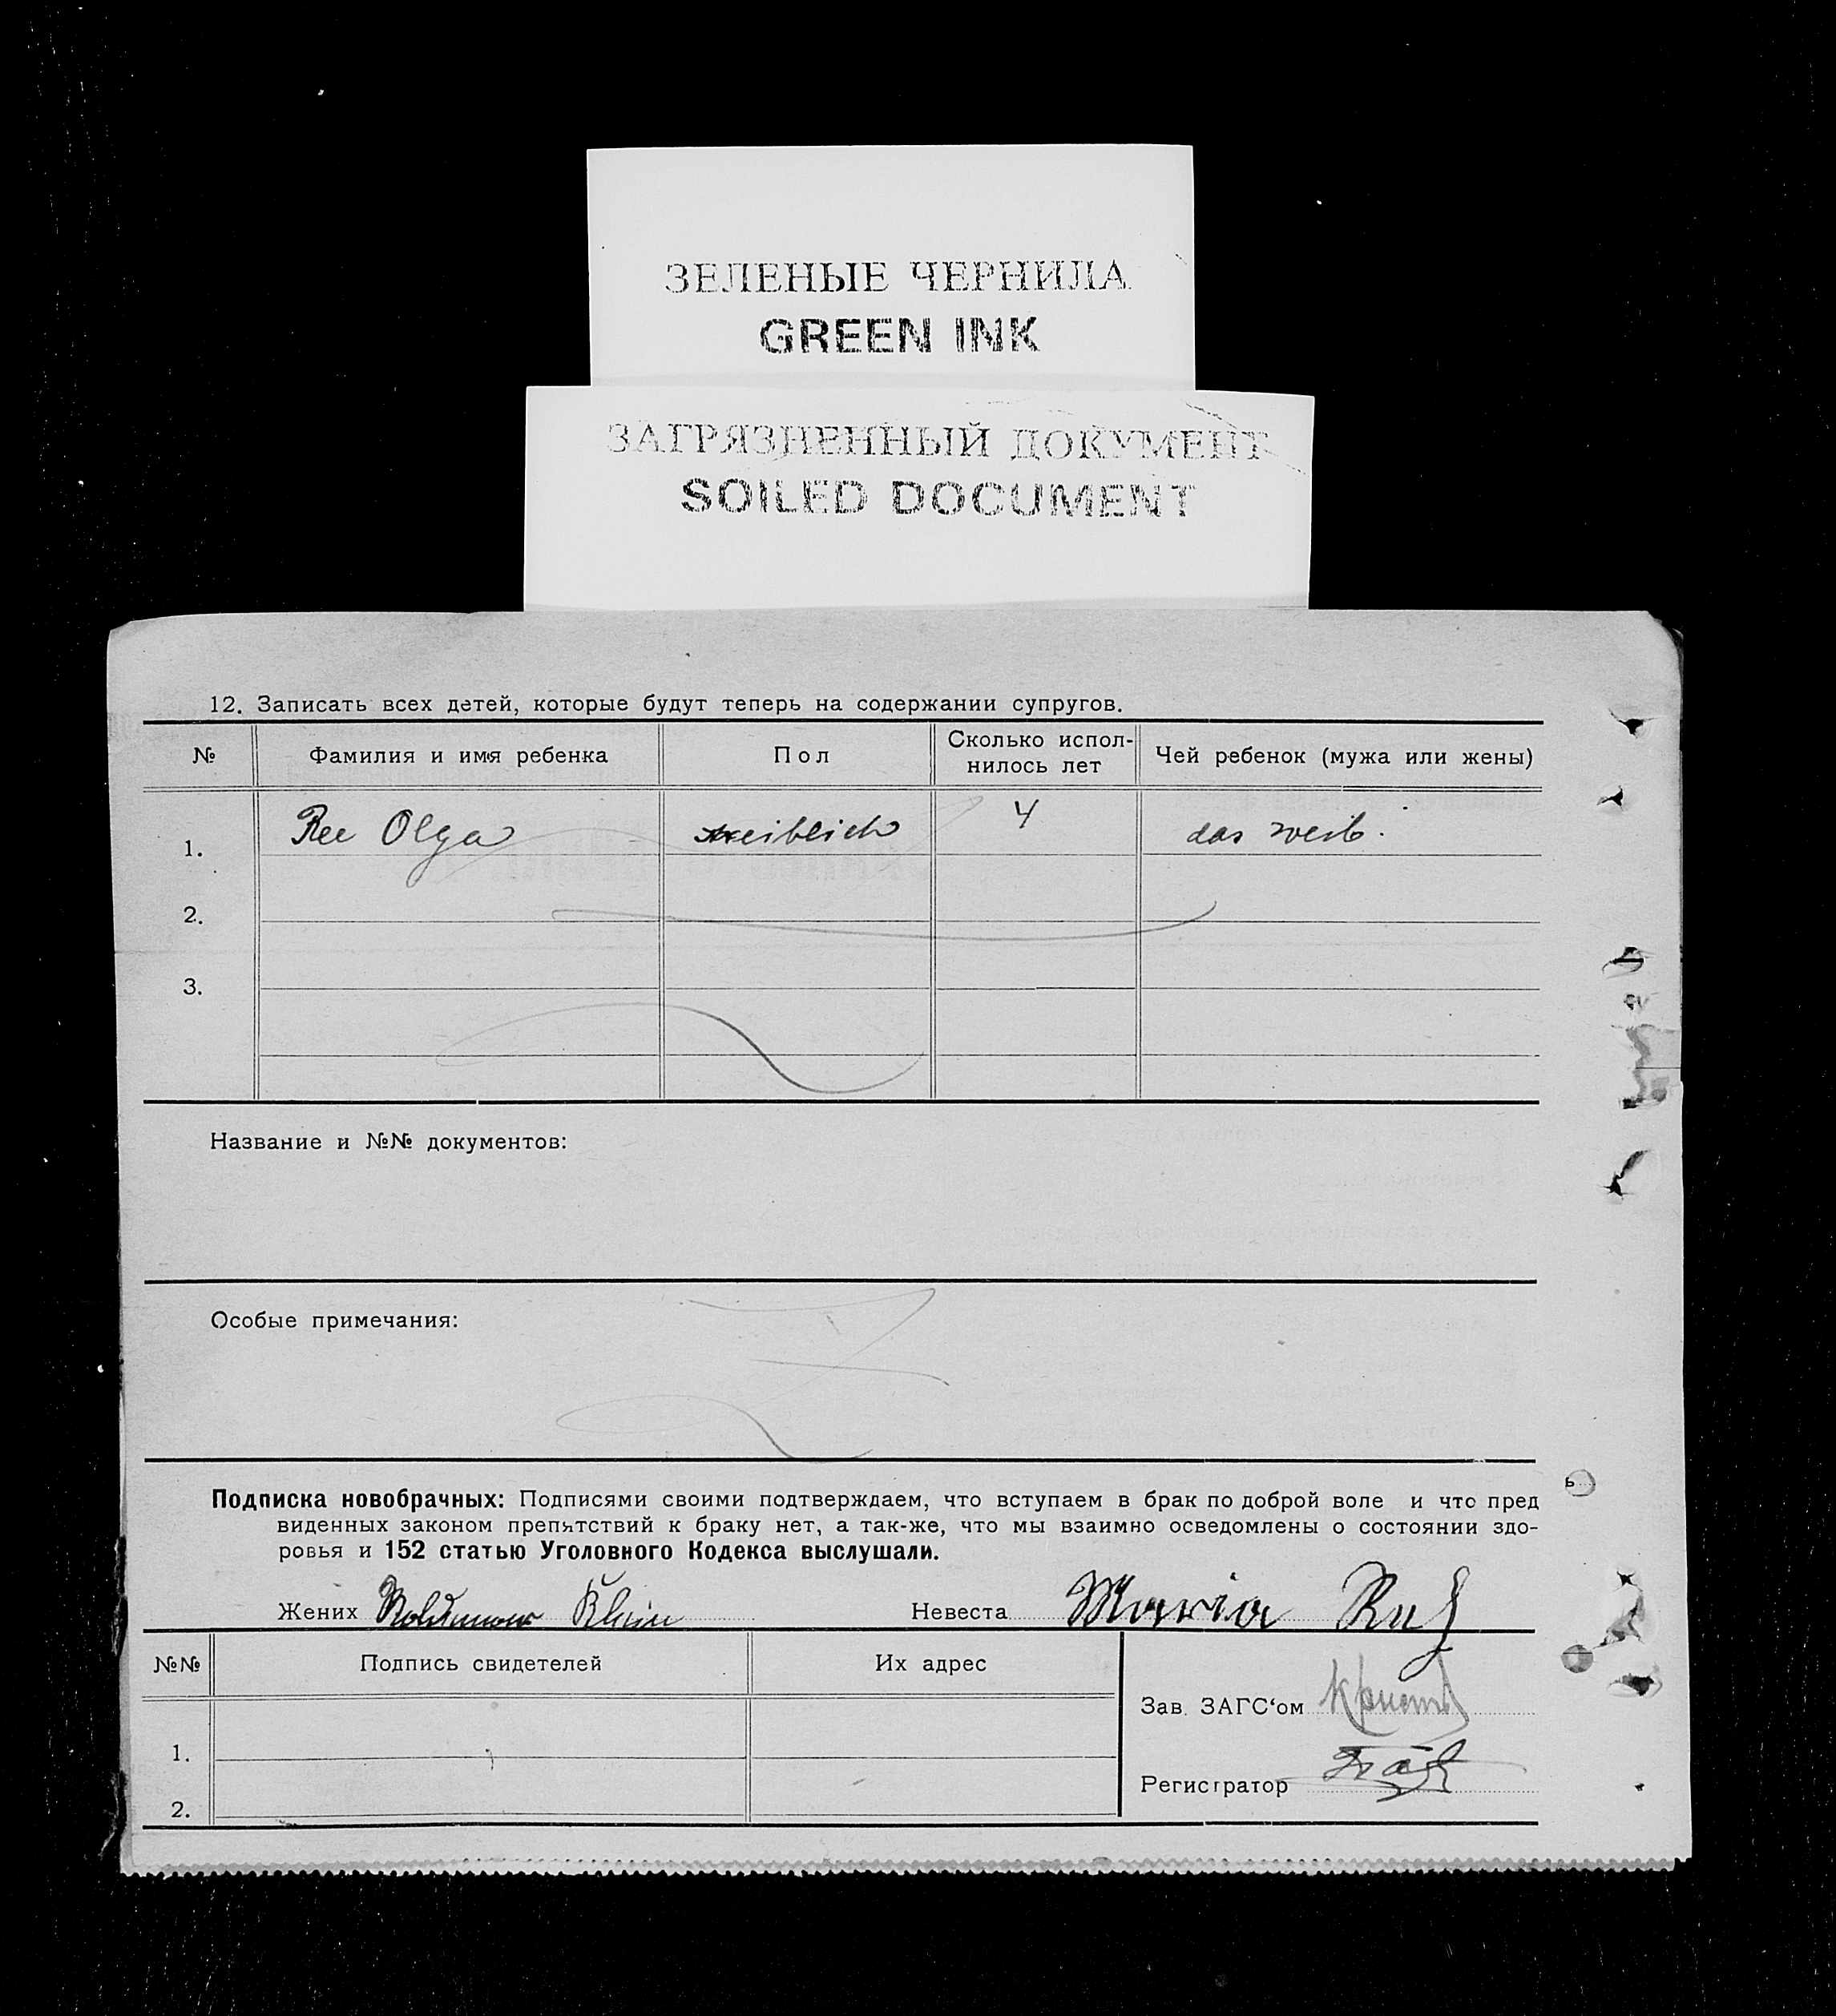 ЗЕЛЕНЫЕ ЧЕРНИЛА
GREEN INK
ЗАГРЯЗНЕННЫЙ ДОКУМЕНТ
SOILED DOCUMENT
12. Записать всех детей, которые будут теперь на содержании супругов.
№ Фамилия и имя ребенка Пол Сколько испол-нилось лет Чей ребенок (мужа или жены)
1. Ree Olga weiblich 4 das weib.
2.
3.
Название и №№ документов:
Особые примечания:
Подписка новобрачных: Подписями своими подтверждаем, что вступаем в брак по доброй воле и что пред
виденных законом препятствий к браку нет, а так-же, что мы взаимно осведомлены о состоянии здо-
ровья и 152 статью Уголовного Кодекса выслушали.
Жених Woldemar Klein Невеста Maria
№№ Подпись свидетелей Их адрес
Зав. ЗАГС‘ом
1.
Регистратор
2.